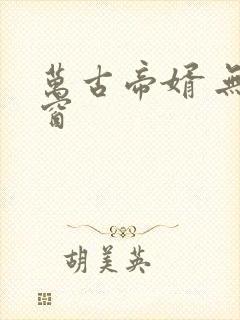 萬古帝婿 無
窗
胡美英